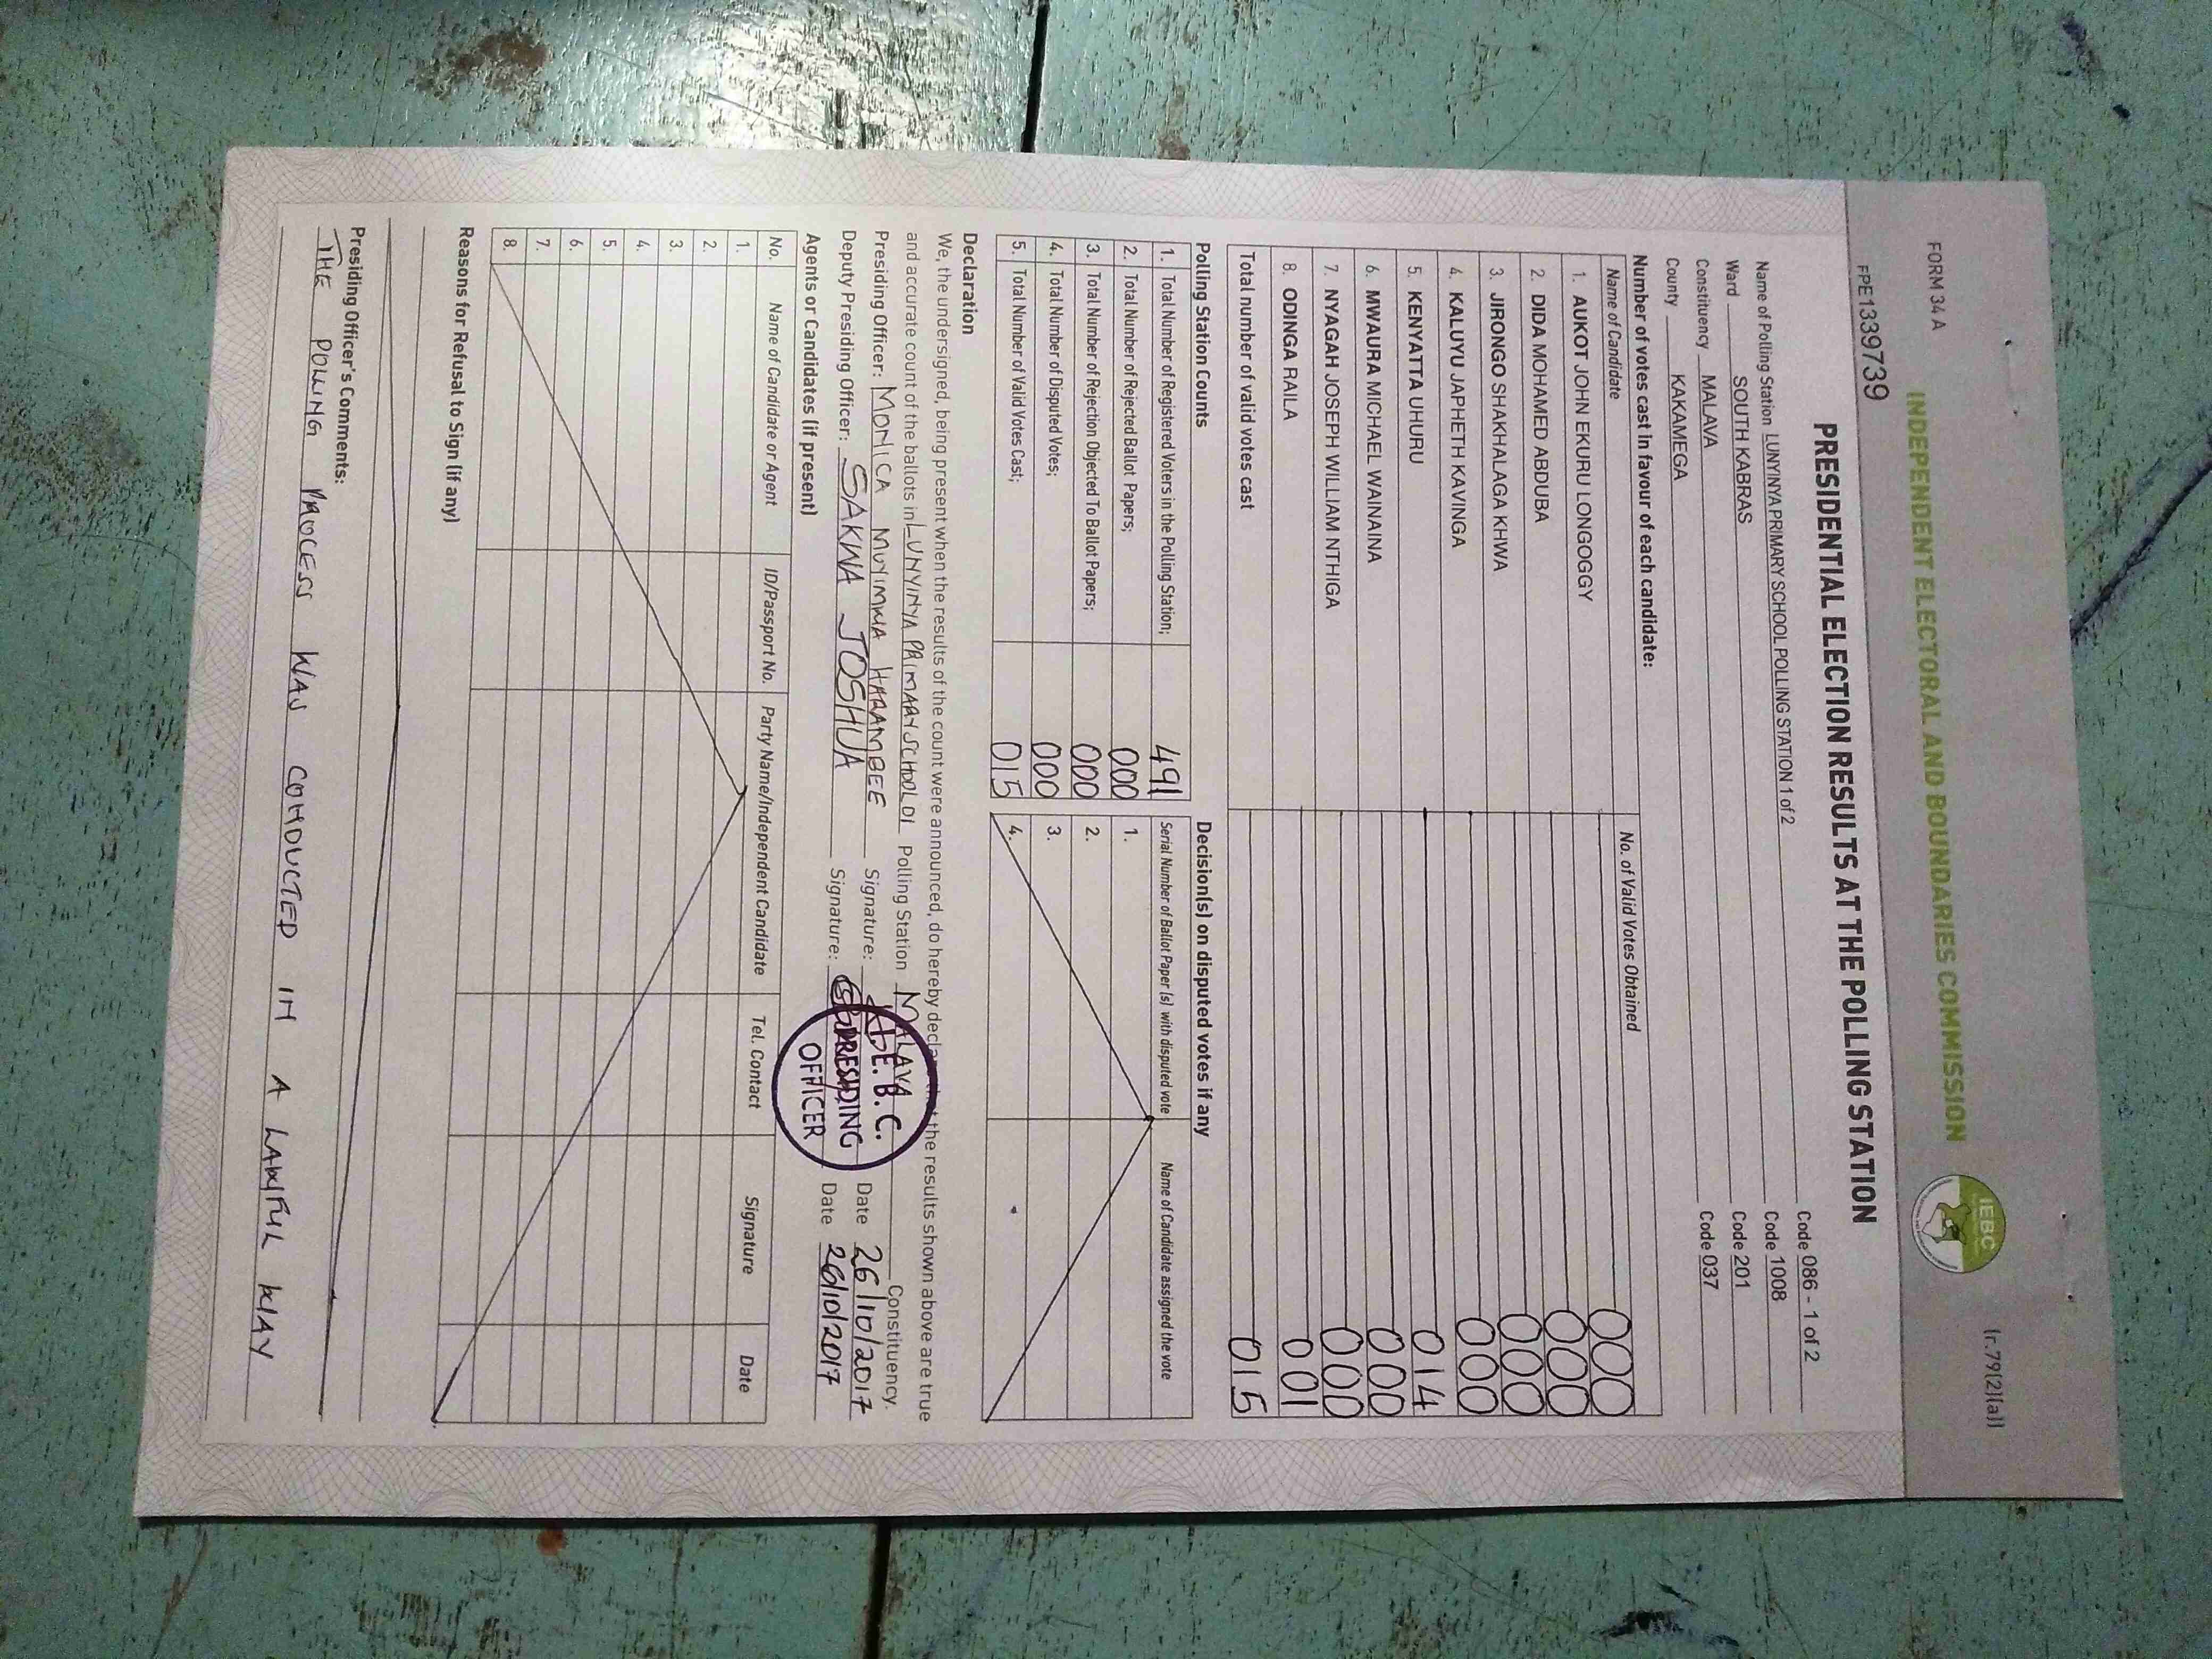 FORM 34 A
(r.79(2)(a))
INDEPENDENT ELECTORAL AND BOUNDARIES COMMISSION
IEBC
FPE1339739
PRESIDENTIAL ELECTION RESULTS AT THE POLLING STATION
Name of Polling Station LUNYINYA PRIMARY SCHOOL POLLING STATION 1 of 2 Code 086 - 1 of 2
Ward SOUTH KABRAS Code 1008
Constituency MALAVA Code 201
County KAKAMEGA Code 037
Number of votes cast in favour of each candidate:
Name of Candidate No. of Valid Votes Obtained
1. AUKOT JOHN EKURU LONGOGGY 000
2. DIDA MOHAMED ABDUBA 000
3. JIRONGO SHAKHALAGA KHWA 000
4. KALUYU JAPHETH KAVINGA 000
5. KENYATTA UHURU 014
6. MWAURA MICHAEL WAINAINA 000
7. NYAGAH JOSEPH WILLIAM NTHIGA 000
8. ODINGA RAILA 001
Total number of valid votes cast 015
Polling Station Counts
1. Total Number of Registered Voters in the Polling Station; 491
2. Total Number of Rejected Ballot Papers; 000
3. Total Number of Rejection Objected To Ballot Papers; 000
4. Total Number of Disputed Votes; 000
5. Total Number of Valid Votes Cast; 015
Decision(s) on disputed votes if any
Serial Number of Ballot Paper (s) with disputed vote Name of Candidate assigned the vote
1.
2.
3.
4.
Declaration
We, the undersigned, being present when the results of the count were announced, do hereby declare that the results shown above are true
and accurate count of the ballots in LUNYINYA PRIMARY SCHOOL 01 Polling Station MALAVA Constituency.
Presiding Officer: MONICA MUYIMWA HARAMBEE Signature: Date 26/10/2017
Deputy Presiding Officer: SAKWA JOSHUA Signature: Date 26/10/2017
I.E.B.C.
PRESIDING
OFFICER
Agents or Candidates (if present)
No. Name of Candidate or Agent ID/Passport No. Party Name/Independent Candidate Tel. Contact Signature Date
1.
2.
3.
4.
5.
6.
7.
8.
Reasons for Refusal to Sign (if any)
Presiding Officer's Comments:
THE POLLING PROCESS WAS CONDUCTED IN A LAWFUL WAY